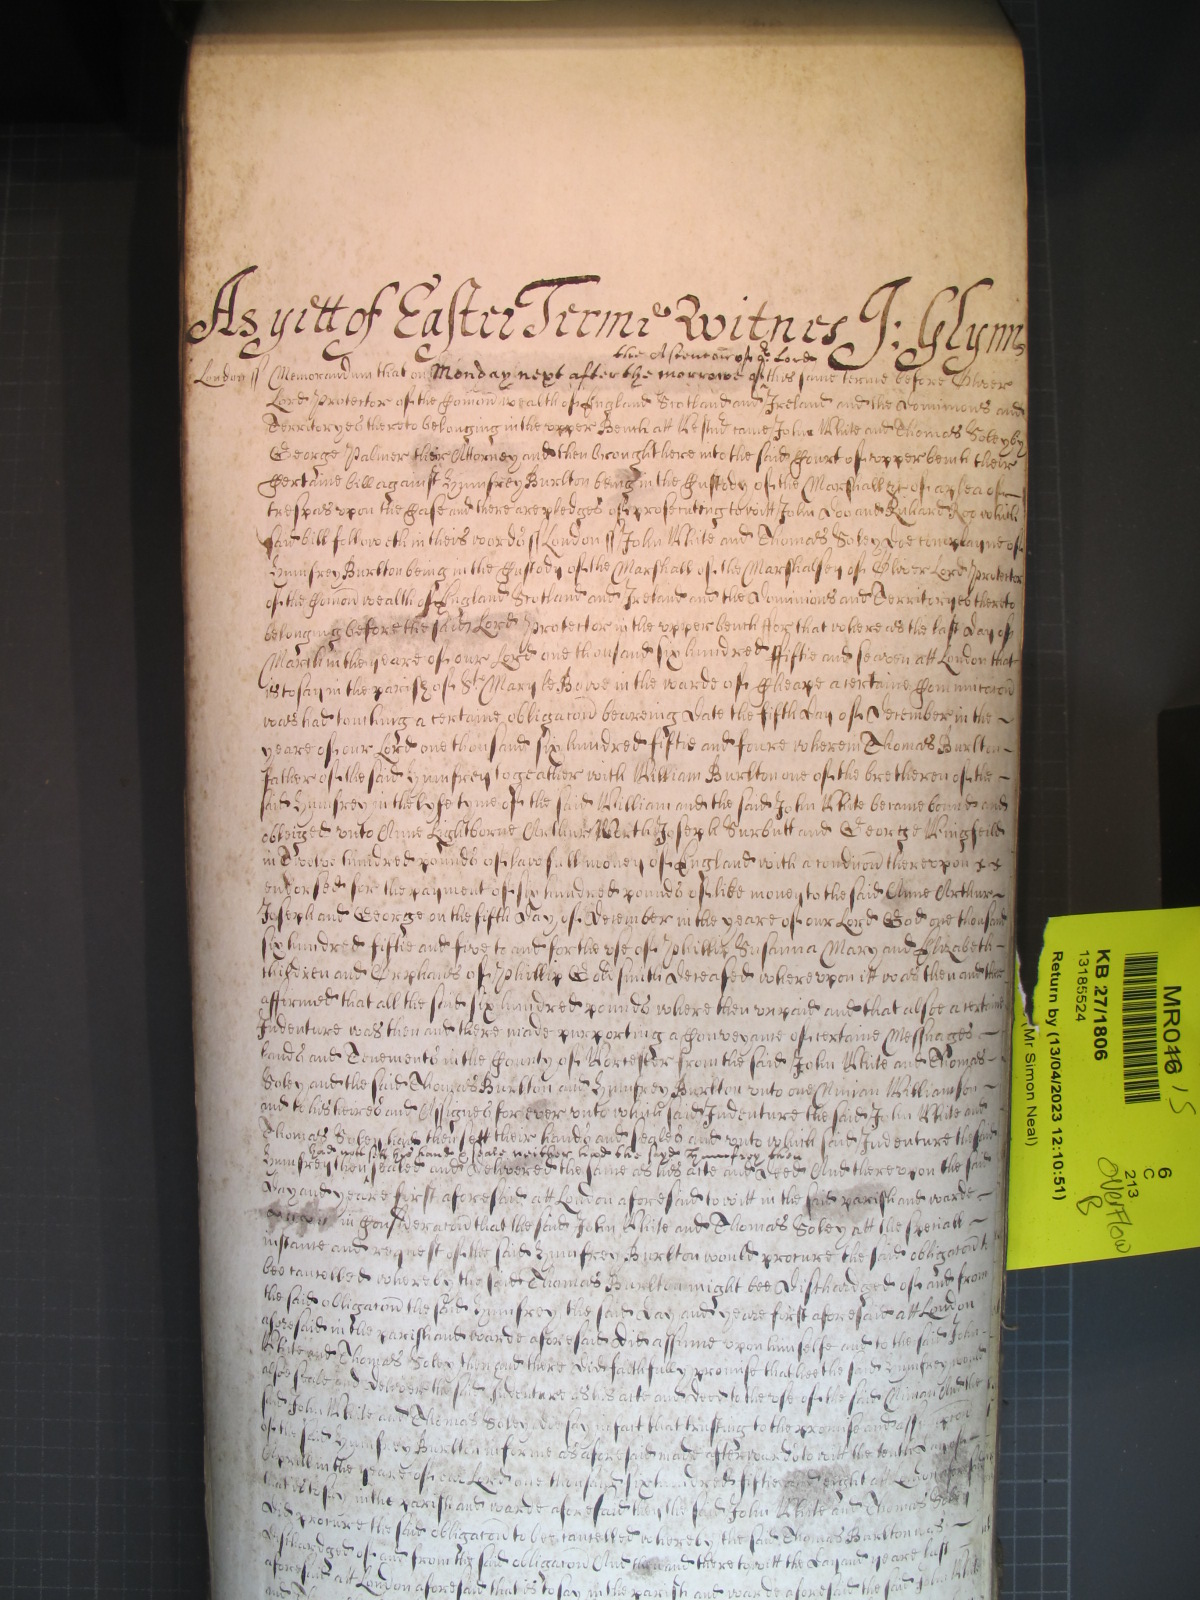 As yett of Easter Terme Witnes J: Glynn
the Ascention of or Lord
London ss Memorandum that on Monday next after the morrowe of this same terme before Oliver
Lord Protector of the Comon wealth of England Scotland and Ireland and the Dominions and
Territoryes thereto belonging in the upper Bench att Westmr came John White and Thomas Soley by
George Palmer their Attorney and then brought here into the said Court of upper bench their
Certaine bill against Humfrey Burlton being in the Custody of the Marshall &c of a plea of
trespas upon the Case and there are pledges of prosecuting to witt John Doo and Richard Roo which
said bill followeth in theis words ss London ss John White and Thomas Soley doe complayne of
Humfrey Burlton being in the Custody of the Marshall of the Marshalsey of Oliver Lord Protector
of the Comon wealth of England Scotland and Ireland and the Dominions and Territoryes thereto
belonging before the said Lord Protector in the upper bench For that whereas the last day of
March in the yeare of our Lord one thousand six hundred fiftie and seaven att London that
is to say in the parish of St Mary le Bowe in the warde of Cheape a certaine Communicacon
was had touching a certaine obligacon beareing date the fifth day of December in the
yeare of our Lord one thousand six hundred fiftie and foure wherein Thomas Burlton
father of the said Humfrey togeather with William Burlton one of the bretheren of the
said Humfrey in the lyfe tyme of the said William and the said John White became bound and
obleiged unto Anne Lightborne Arthur Worth Joseph Surbutt and George Wingfeild
in Twelve hundred pounds of lawfull money of England with a condicon thereupon
endorsed for the payment of six hundred pounds of like money to the said Anne Arthur
Joseph and George on the fifth day of December in the yeare of our Lord God one thousand
six hundred fiftie and five to and for the use of Phillip Susanna Mary and Elizabeth
children and Orphans of Phillip Goldsmith deceased whereupon itt was then and there
affirmed that all the said six hundred pounds where then unpaid and that alsoe a certaine
Indenture was then and there made purporting a Conveyance of certaine Messuages
lands and Tenements in the County of Worcester from the said John White and Thomas
Soley and the said Thomas Burlton and Humfrey Burlton unto one Ninian Williamson
and to his heires and Assignes for ever unto which said Indenture the said John White and
Thomas Soley had then sett their hands and seales and unto which said Indenture the said
had not sett his hand & seale neither had the said Humfrey then
Humfrey sealed and delivered the same as his acte and deed And thereupon the said
day and yeare first aforesaid att London aforesaid to witt in the said parish and warde
in Consideracon that the said John White and Thomas Soley att the speciall
instance and request of the said Humfrey Burlton would procure the said obligacon to
bee cancelled whereby the said Thomas Burlton might bee discharged of and from
the said obligacon the said Humfrey the said day and yeare first aforesaid att London
aforesaid in the parish and warde aforesaid did assume upon himselfe and to the said John
White and Thomas Soley then and there did faithfully promise that hee the said Humfrey would
alsoe seale and deliver the said Indenture as his acte and deed to the use of the said Ninian And the
said John White and Thomas Soley doe say in fact that trusting to the promise and assumpcon
of the said Humfrey Burlton in forme as aforesaid made afterwards to witt the tenth day of
in the yeare of our Lord one thousand six hundred fiftie and eight att London aforesaid
that is to say in the parish and warde aforesaid they the said John White and Thomas Soley
did procure the said obligacon to bee cancelled whereby the said Thomas Burlton was
discharged of and from the said obligacon And then and there to witt the day and yeare last
aforesaid att London aforesaid that is to say in the parish and warde aforesaid the said John White
MR046
KB 27/1806
13185524
Return by (13/04/2023 12:10:51)
(Mr Simon Neal)
6
C
213
overflow
B